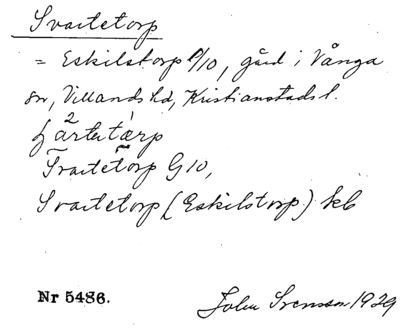 Svartetorp
= Eskilstorp 9/10, gård i Vånga
sn, Villands hd, Kristianstads l.
Svartetorp G 10,
Svartetorp (Eskilstorp) kb
Nr 5486. John Svensson 1929